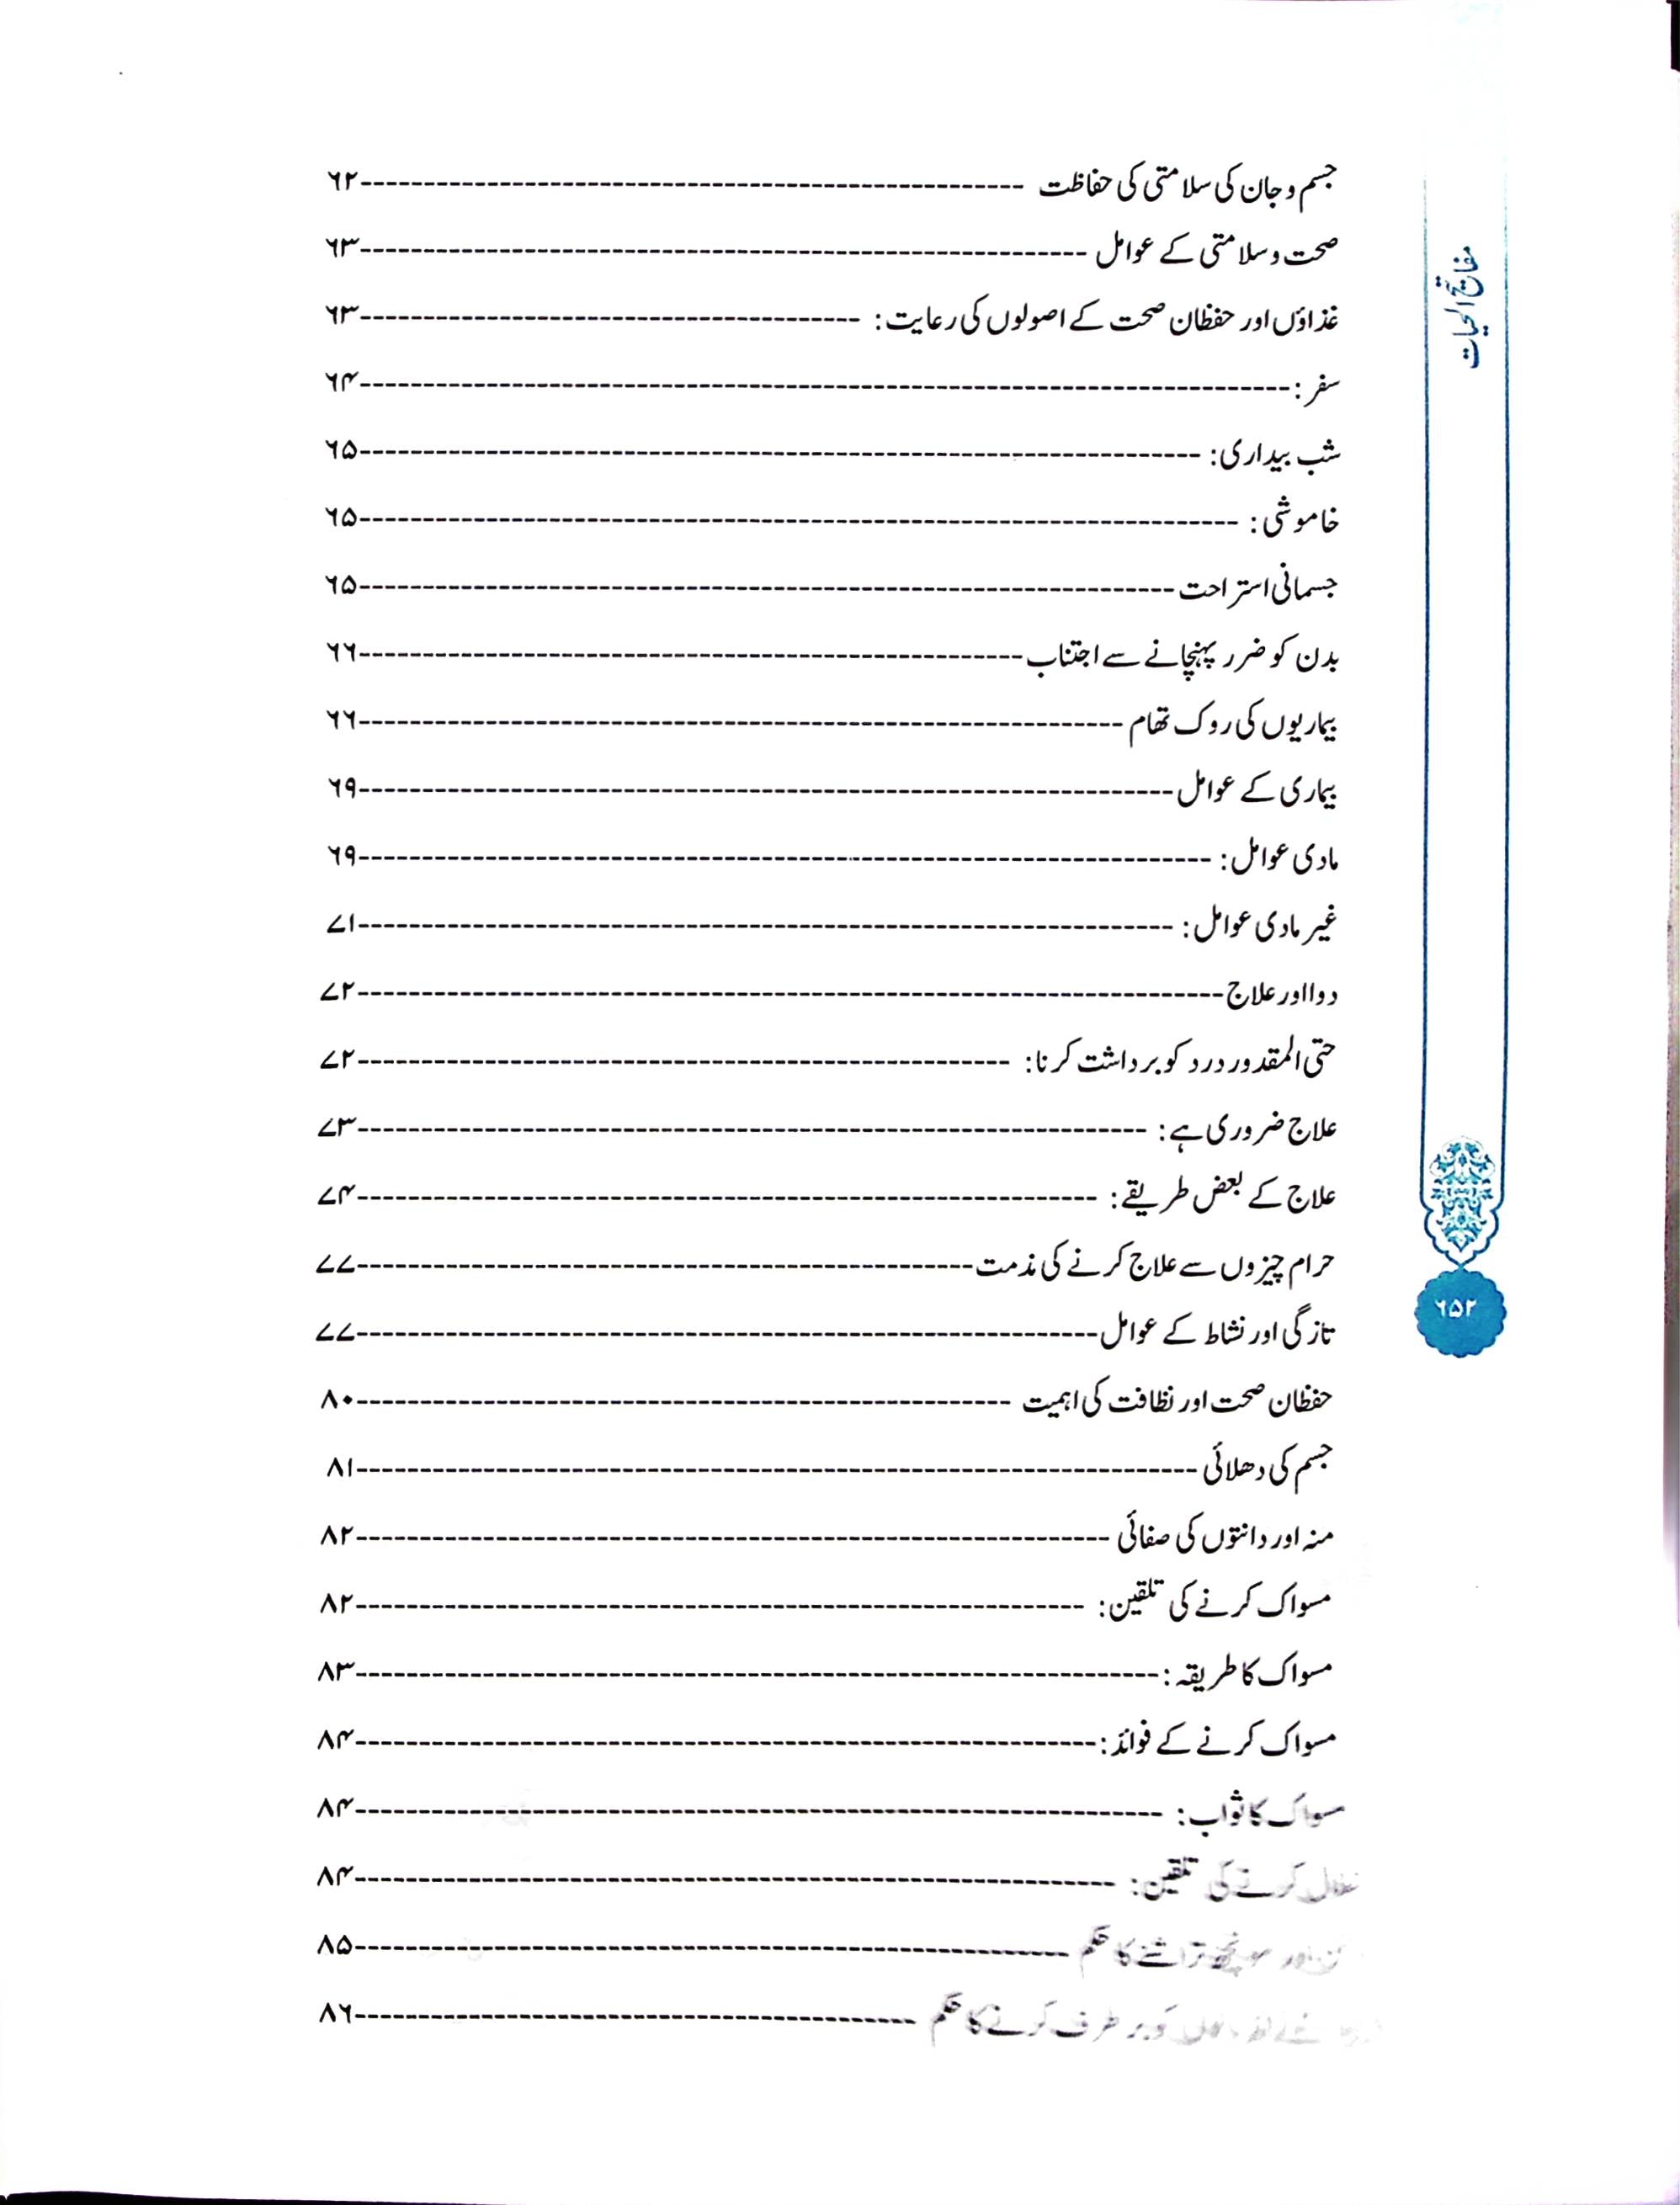 جسم و جان کی سلامتی کی حفاظت ---- ۶۲
صحت و سلامتی کے عوامل ---- ۶۳
غذاؤں اور حفظان صحت کے اصولوں کی رعایت: ---- ۶۳
سفر: ---- ۶۴
شب بیداری: ---- ۶۵
خاموشی: ---- ۶۵
جسمانی استراحت ---- ۶۵
بدن کو ضرر پہنچانے سے اجتناب ---- ۶۶
بیماریوں کی روک تھام ---- ۶۶
بیماری کے عوامل ---- ۶۹
مادی عوامل: ---- ۶۹
غیر مادی عوامل: ---- ۷۱
دوا اور علاج ---- ۷۲
حتی المقدور درد کو برداشت کرنا: ---- ۷۲
علاج ضروری ہے: ---- ۷۳
علاج کے بعض طریقے: ---- ۷۴
حرام چیزوں سے علاج کرنے کی مذمت ---- ۷۷
تازگی اور نشاط کے عوامل ---- ۷۷
حفظان صحت اور نظافت کی اہمیت ---- ۸۰
جسم کی دھلائی ---- ۸۱
منہ اور دانتوں کی صفائی ---- ۸۲
مسواک کرنے کی تلقین: ---- ۸۲
مسواک کا طریقہ: ---- ۸۳
مسواک کرنے کے فوائد: ---- ۸۴
مسواک کا ثواب: ---- ۸۴
خلال کرنے کی تلقین: ---- ۸۴
اور مونچھ تراشنے کا حکم ---- ۸۵
کو برطرف کرنے کا حکم ---- ۸۶
مفاتیح الحیات
۶۵۲